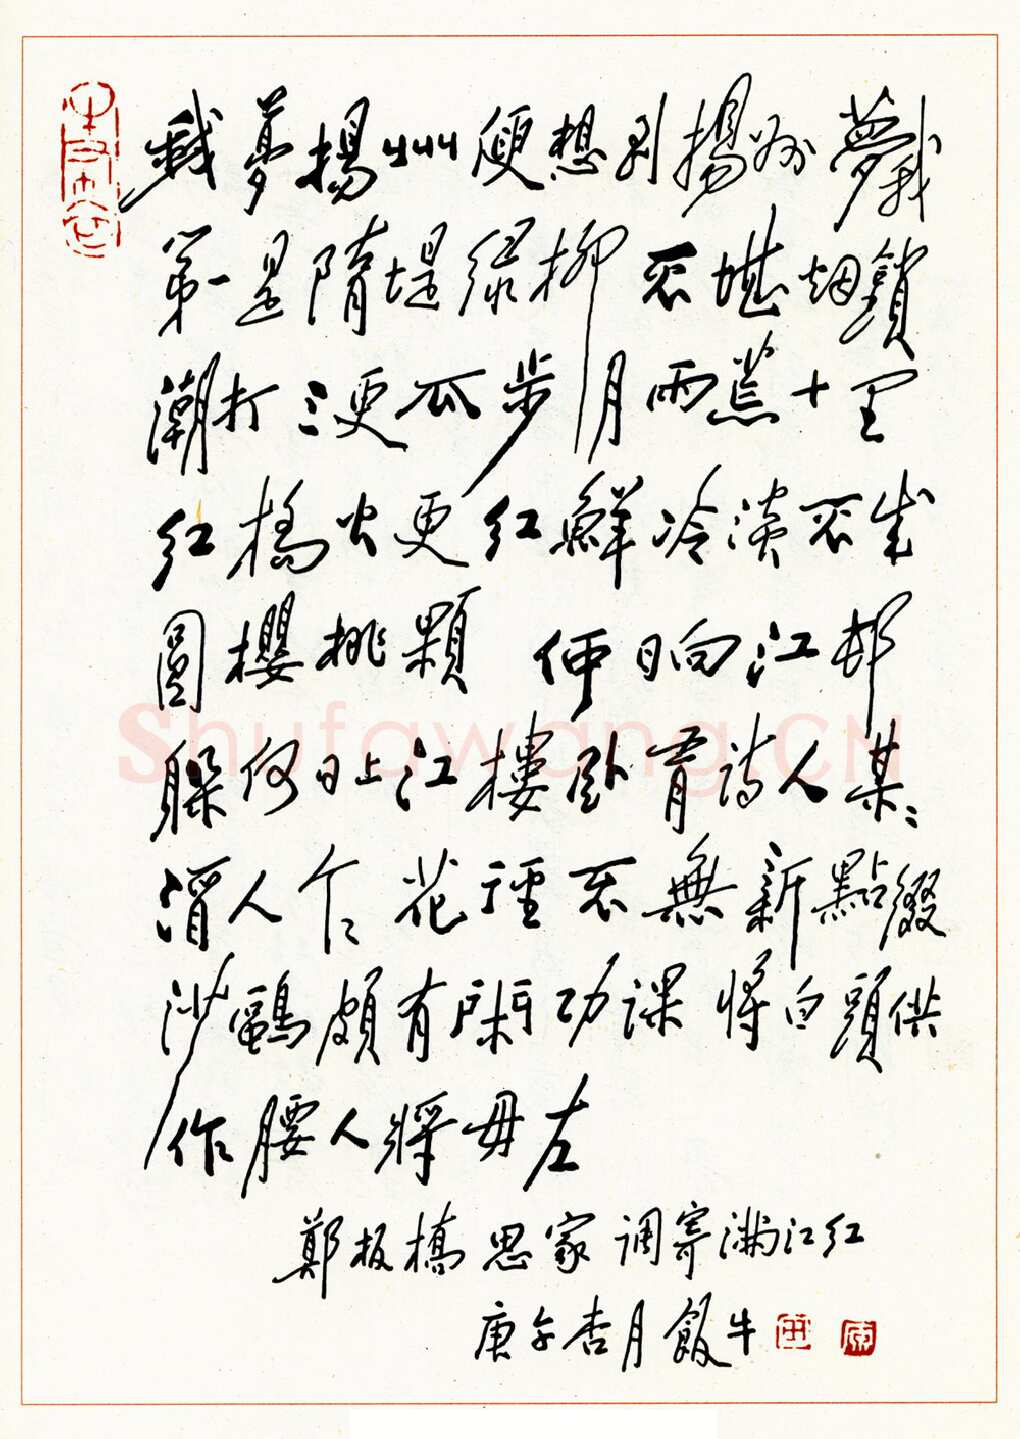 我夢揚州便想到揚州夢我
第一是隋堤绿柳不堪烟鎖
潮打三更瓜步月雨荒十里
红橋火更红鮮冷淡不成
圓櫻桃顆 何日向江邨
躲何日上江樓卧有詩人某〻
酒人个〻花徑不無新點綴
沙鷗頗有閑功課 將白頭供
作腰人將毋左
鄭板橋思家 调寄满江红
庚午杏月飯牛
Shufawang.CN